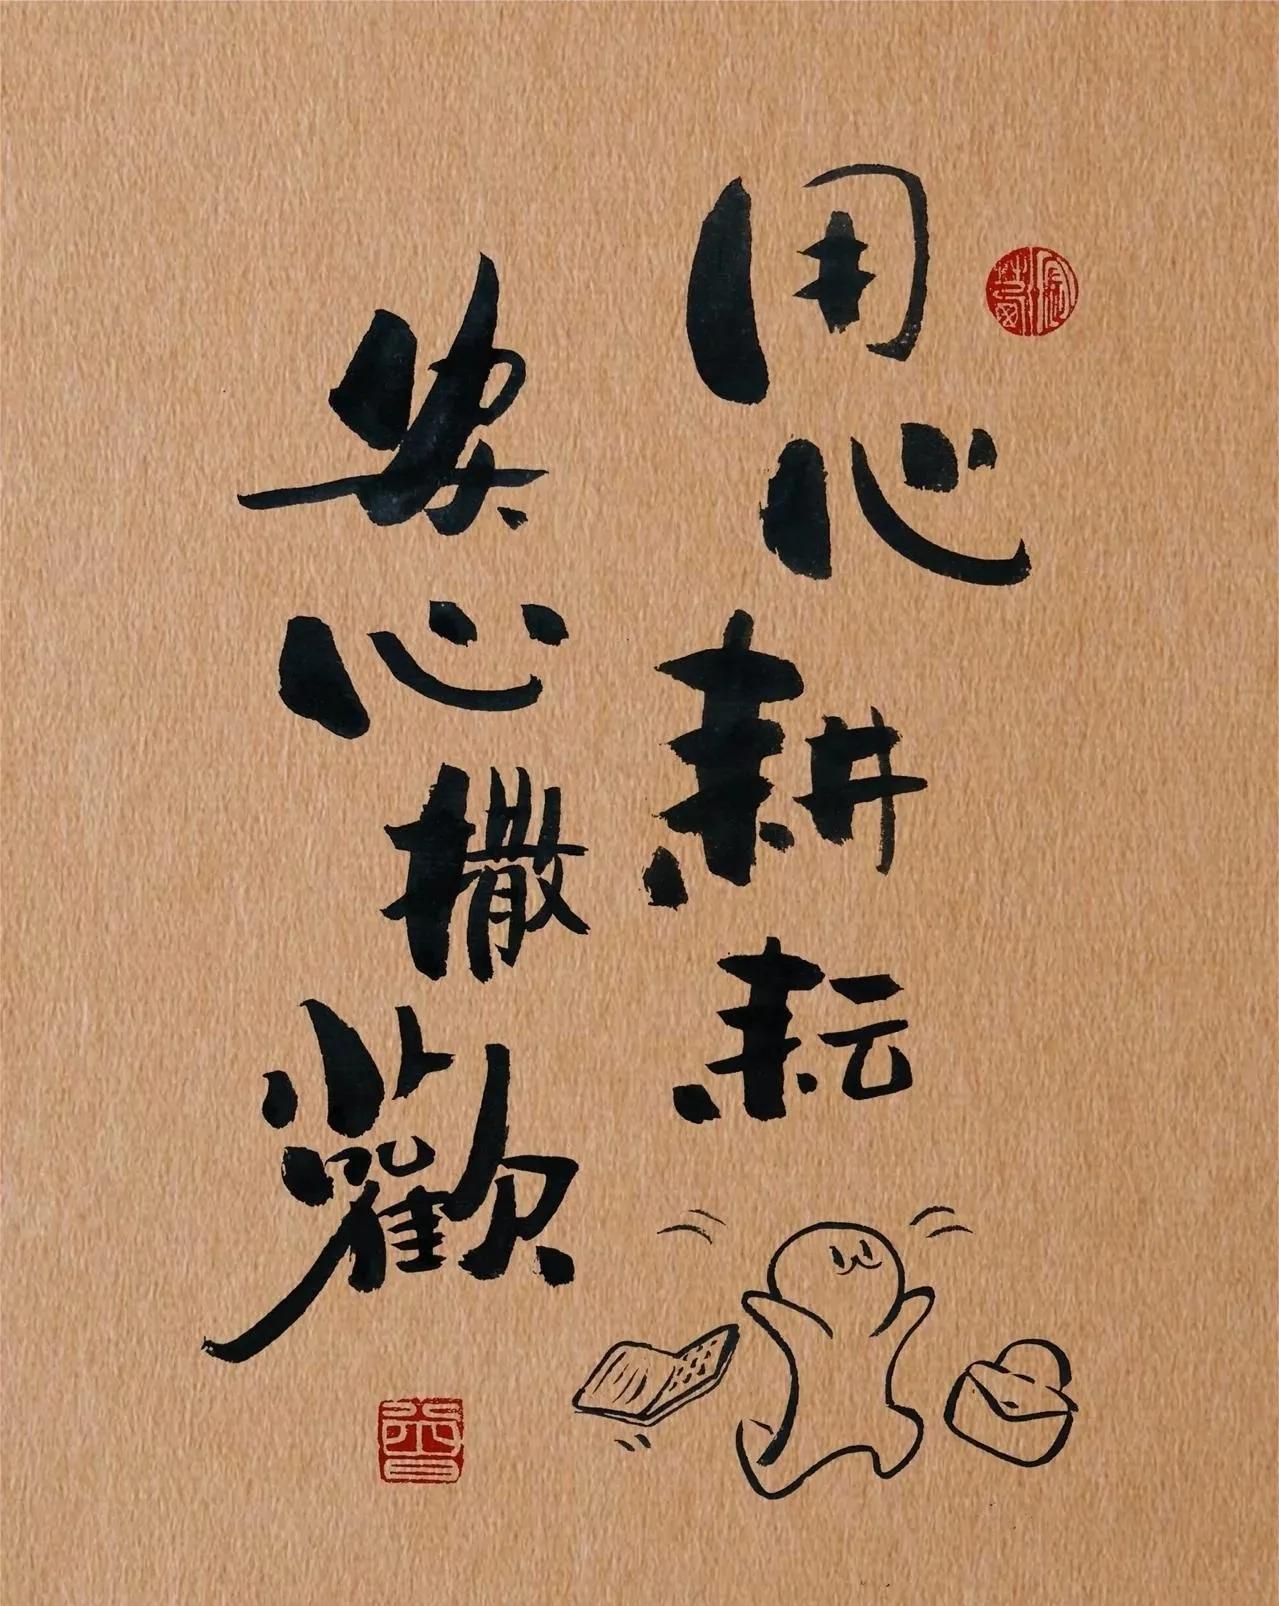 用心耕耘
安心撒歡